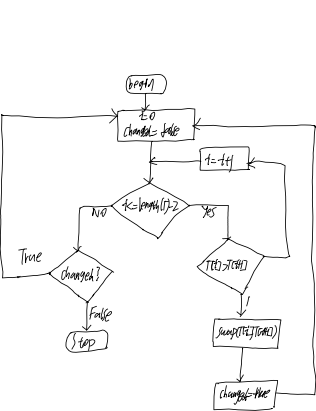 begin
t=0
changed=false
t=t+1
t<=length(T)-2
NO
Yes
True
changed?
T[t]>T[t+1]
False
stop
swap(T[t],T[t+1])
changed=true